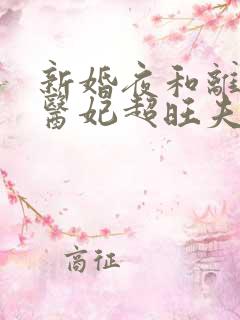 新婚夜和離
醫妃超旺夫
商征